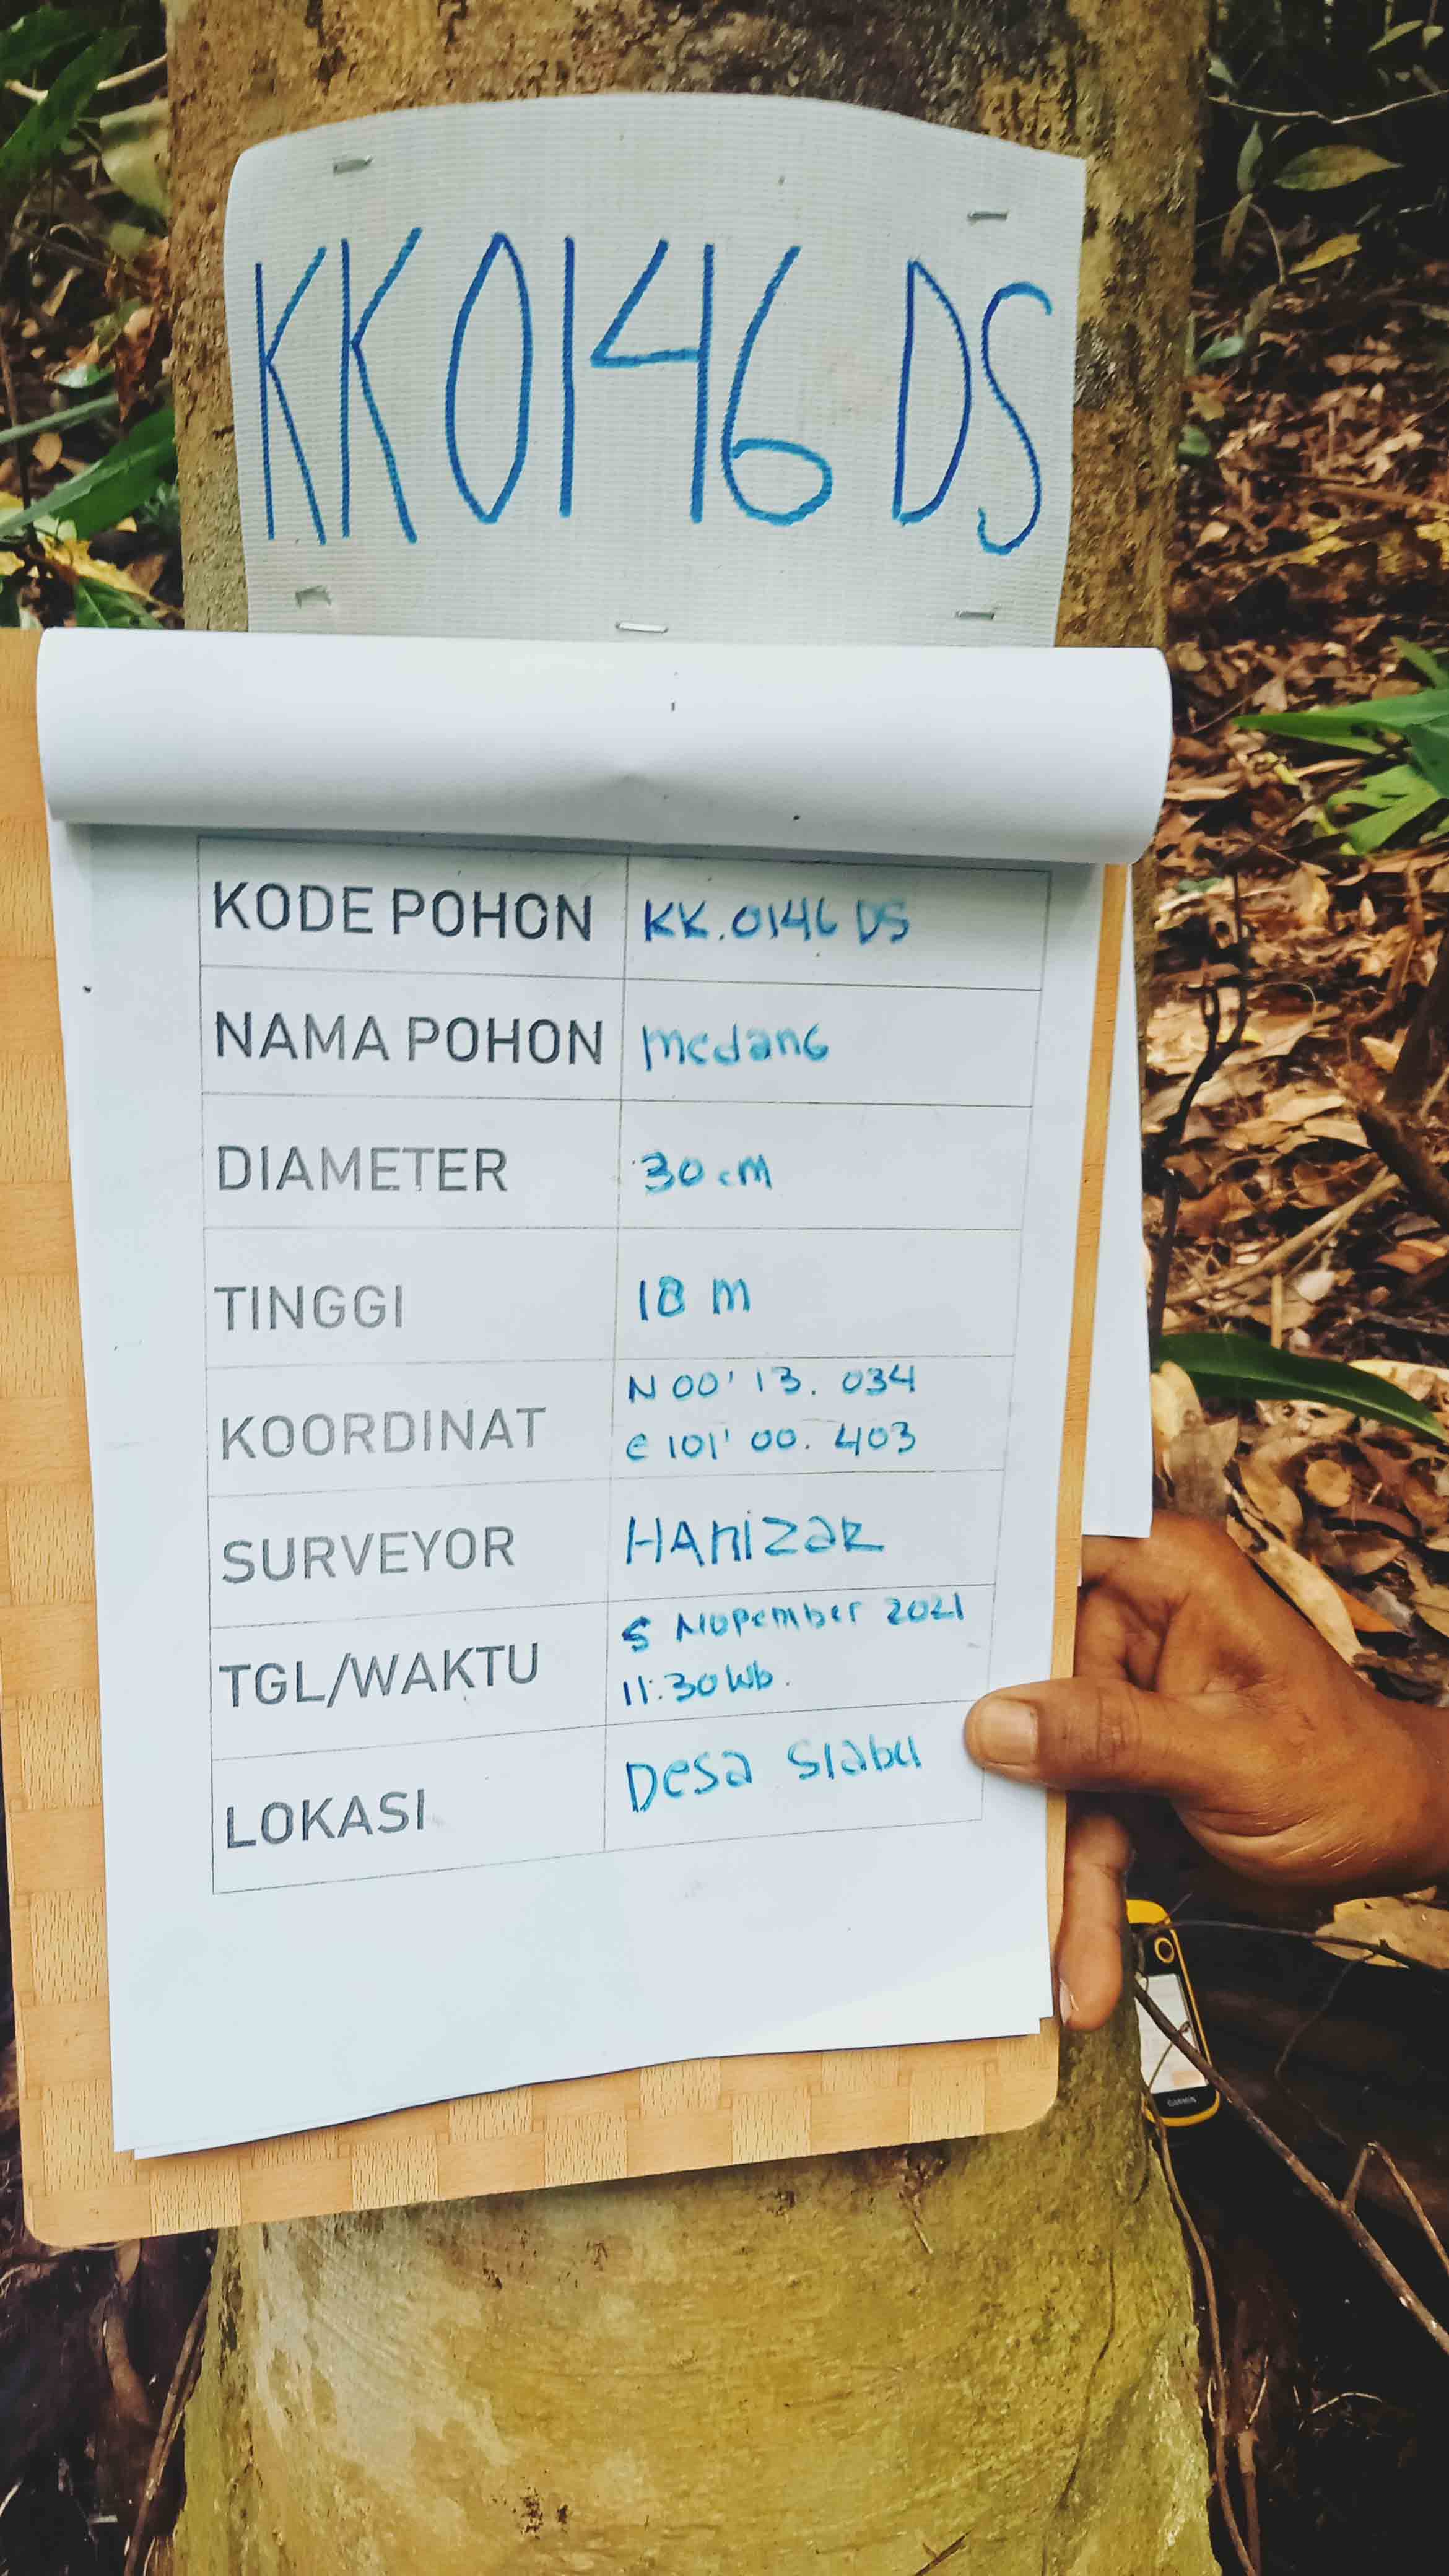 KK0146 DS
KODE POHON KK.0146 DS
NAMA POHON medang
DIAMETER 30 cm
TINGGI 18 m
KOORDINAT N 00' 13. 034
E 101' 00. 403
SURVEYOR HANIZAR
TGL/WAKTU 5 Nopember 2021
11:30 Wib.
LOKASI Desa Siabu
GARMIN